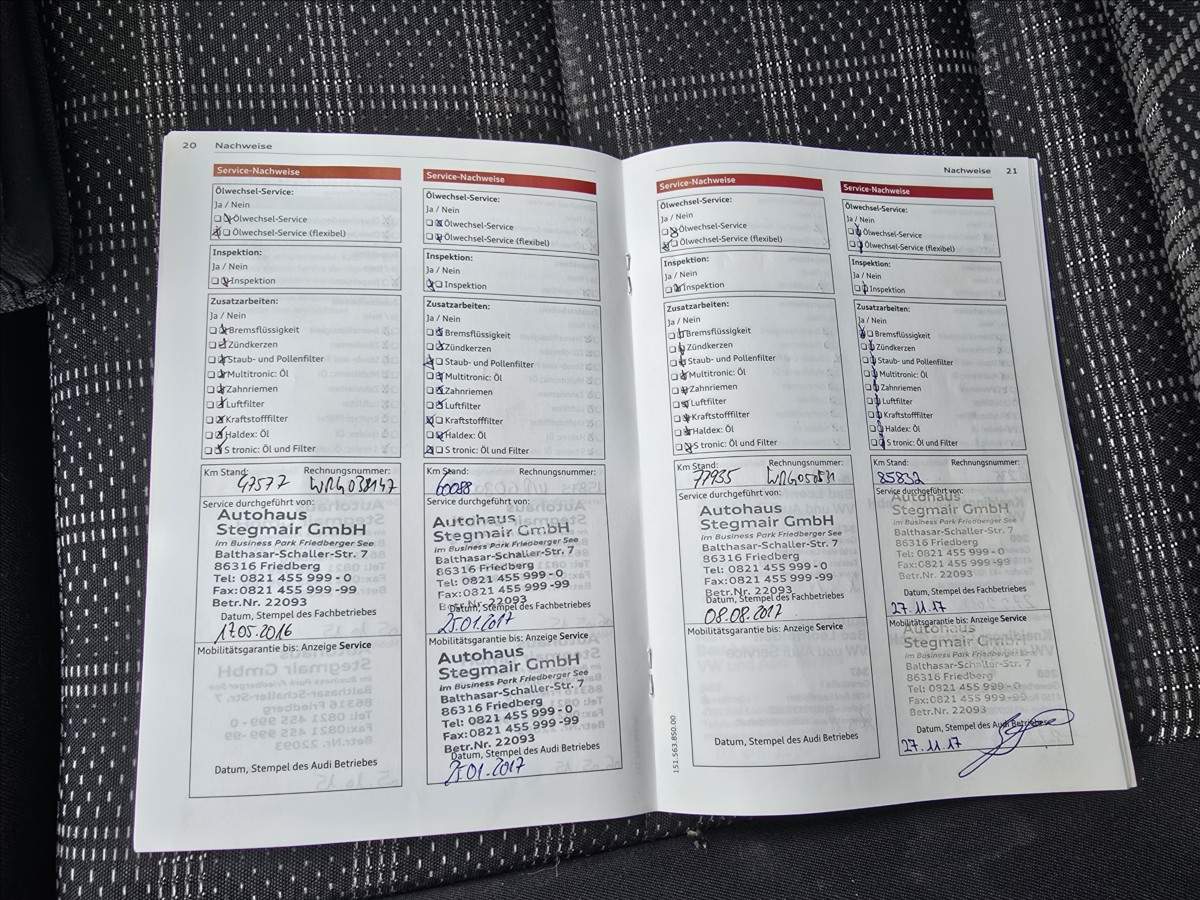 20 Nachweise
Service-Nachweise
Ölwechsel-Service:
Ja / Nein
Ölwechsel-Service
Ölwechsel-Service (flexibel)
Inspektion:
Ja / Nein
Inspektion
Zusatzarbeiten:
Ja / Nein
Bremsflüssigkeit
Zündkerzen
Staub- und Pollenfilter
Multitronic: Öl
Zahnriemen
Luftfilter
Kraftstofffilter
Haldex: Öl
S tronic: Öl und Filter
Km Stand: Rechnungsnummer:
47577 WRG038147
Service durchgeführt von:
Autohaus
Stegmair GmbH
im Business Park Friedberger See
Balthasar-Schaller-Str. 7
86316 Friedberg
Tel: 0821 455 999 - 0
Fax: 0821 455 999 -99
Betr.Nr. 22093
Datum, Stempel des Fachbetriebes
17.05.2016
Mobilitätsgarantie bis: Anzeige Service
Datum, Stempel des Audi Betriebes
Service-Nachweise
Ölwechsel-Service:
Ja / Nein
Ölwechsel-Service
Ölwechsel-Service (flexibel)
Inspektion:
Ja / Nein
Inspektion
Zusatzarbeiten:
Ja / Nein
Bremsflüssigkeit
Zündkerzen
Staub- und Pollenfilter
Multitronic: Öl
Zahnriemen
Luftfilter
Kraftstofffilter
Haldex: Öl
S tronic: Öl und Filter
Km Stand: Rechnungsnummer:
60088
Service durchgeführt von:
Autohaus
Stegmair GmbH
im Business Park Friedberger See
Balthasar-Schaller-Str. 7
86316 Friedberg
Tel: 0821 455 999 - 0
Fax: 0821 455 999 -99
Betr.Nr. 22093
Datum, Stempel des Fachbetriebes
25.01.2017
Mobilitätsgarantie bis: Anzeige Service
Autohaus
Stegmair GmbH
im Business Park Friedberger See
Balthasar-Schaller-Str. 7
86316 Friedberg
Tel: 0821 455 999 - 0
Fax: 0821 455 999 -99
Betr.Nr. 22093
Datum, Stempel des Audi Betriebes
25.01.2017
Nachweise 21
Service-Nachweise
Ölwechsel-Service:
Ja / Nein
Ölwechsel-Service
Ölwechsel-Service (flexibel)
Inspektion:
Ja / Nein
Inspektion
Zusatzarbeiten:
Ja / Nein
Bremsflüssigkeit
Zündkerzen
Staub- und Pollenfilter
Multitronic: Öl
Zahnriemen
Luftfilter
Kraftstofffilter
Haldex: Öl
S tronic: Öl und Filter
Km Stand: Rechnungsnummer:
77955
Service durchgeführt von:
Autohaus
Stegmair GmbH
im Business Park Friedberger See
Balthasar-Schaller-Str. 7
86316 Friedberg
Tel: 0821 455 999 - 0
Fax: 0821 455 999 -99
Betr.Nr. 22093
Datum, Stempel des Fachbetriebes
08.08.2017
Mobilitätsgarantie bis: Anzeige Service
Datum, Stempel des Audi Betriebes
151.563.850.00
Service-Nachweise
Ölwechsel-Service:
Ja / Nein
Ölwechsel-Service
Ölwechsel-Service (flexibel)
Inspektion:
Ja / Nein
Inspektion
Zusatzarbeiten:
Ja / Nein
Bremsflüssigkeit
Zündkerzen
Staub- und Pollenfilter
Multitronic: Öl
Zahnriemen
Luftfilter
Kraftstofffilter
Haldex: Öl
S tronic: Öl und Filter
Km Stand: Rechnungsnummer:
85832
Service durchgeführt von:
Autohaus
Stegmair GmbH
im Business Park Friedberger See
Balthasar-Schaller-Str. 7
86316 Friedberg
Tel: 0821 455 999 - 0
Fax: 0821 455 999 -99
Betr.Nr. 22093
Datum, Stempel des Fachbetriebes
27.11.17
Mobilitätsgarantie bis: Anzeige Service
Autohaus
Stegmair GmbH
im Business Park Friedberger See
Balthasar-Schaller-Str. 7
86316 Friedberg
Tel: 0821 455 999 - 0
Fax: 0821 455 999 -99
Betr.Nr. 22093
Datum, Stempel des Audi Betriebes
27.11.17